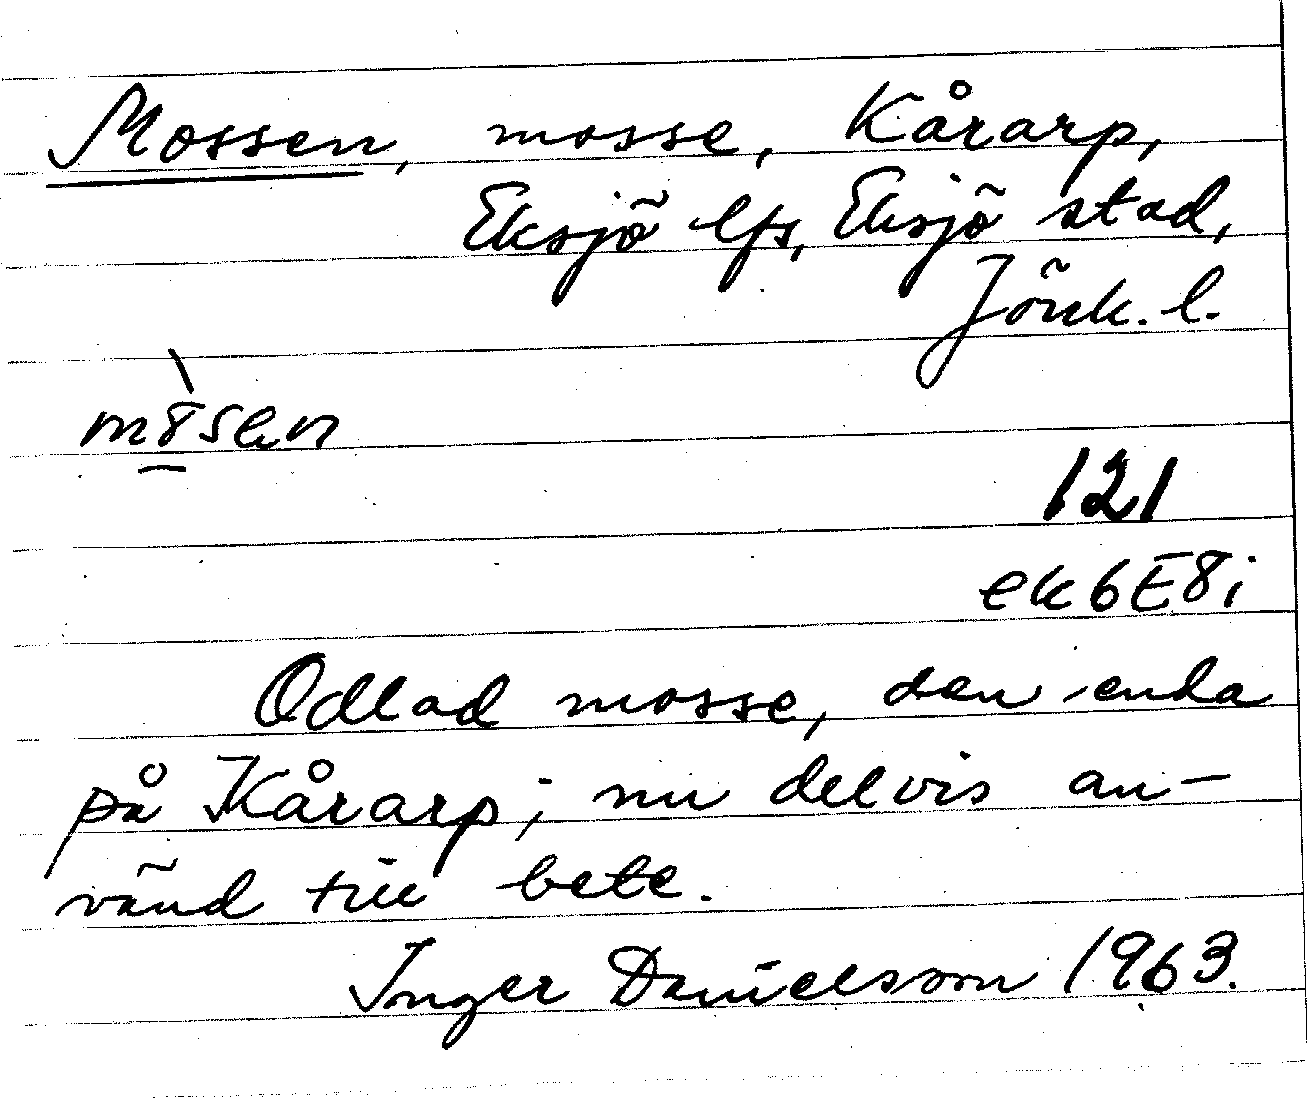 Mossen, mosse, Kårarp,
Eksjö lfs, Eksjö stad,
Jönk. l.
121
ek6E8i
Odlad mosse, den enda
på Kårarp; nu delvis an-
vänd till bete.
Inger Danielsson 1963.